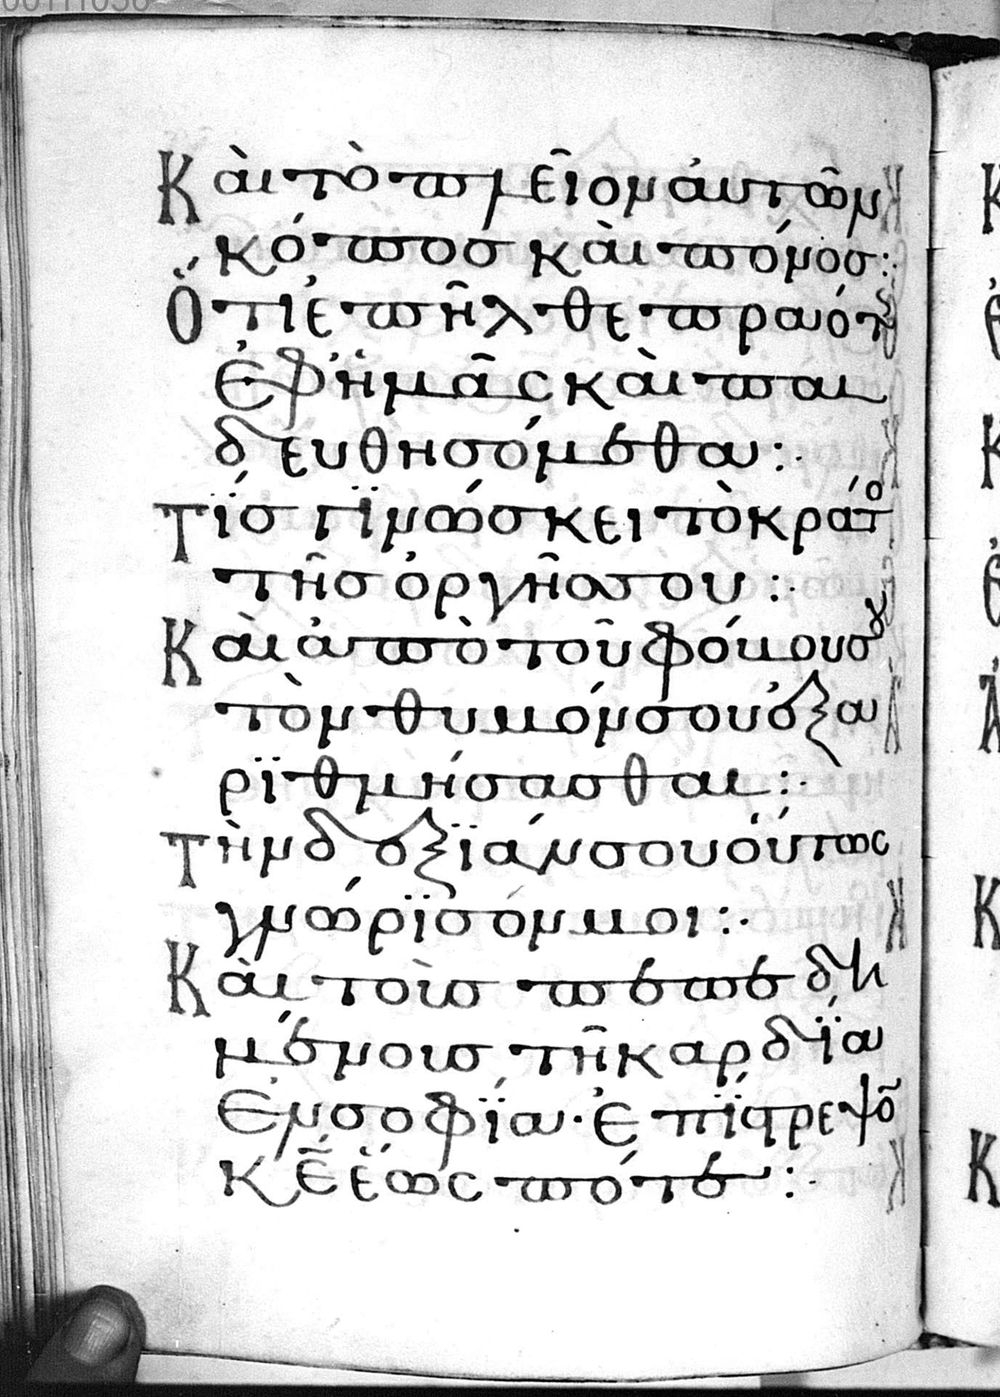 Καὶ τὸ πλεῖον αὐτῶν
κόπος καὶ πόνος:
Ὅτι ἐπῆλθε πραότης
ἐφ ἡμᾶς καὶ παι
δευθησόμεθα:
Τίς γινώσκει τὸ κράτος
τῆς ὀργῆς σου:
Καὶ ἀπὸ τοῦ φόβου σου
τὸν θυμόν σου ἐξα
ριθμήσασθαι:
Τὴν δεξιάν σου οὕτως
γνώρισόν μοι:
Καὶ τοὺς πεπεδη
μένους τῇ καρδία
ἐν σοφία· Ἐπίστρεψον
κε̅ ἕως πότε: